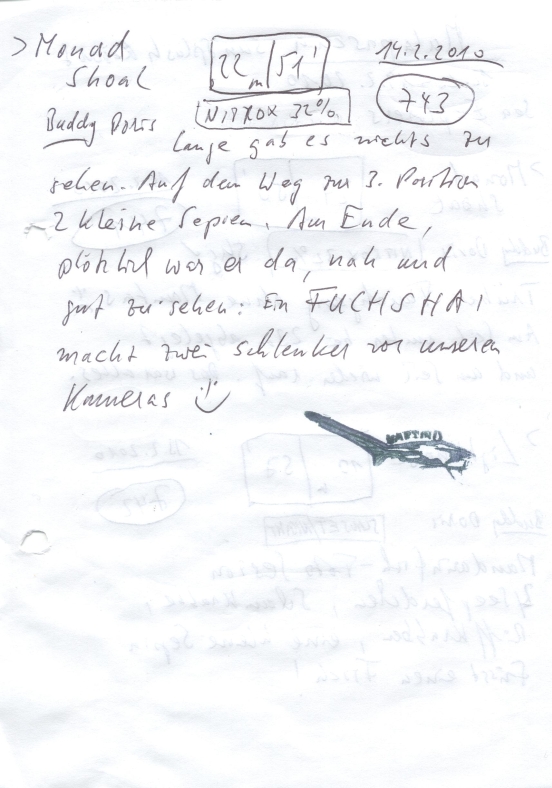 > Monad
Shoal
22 m / 51'
14.2.2010
NITROX 32%
743
Buddy Doris
Lange gab es nichts zu
sehen. Auf dem Weg zur 3. Position
2 kleine Sepien. Am Ende,
plötzlich war er da, nah und
gut zu sehen: Ein FUCHSHAI
macht zwei Schlenker vor unseren
Kameras